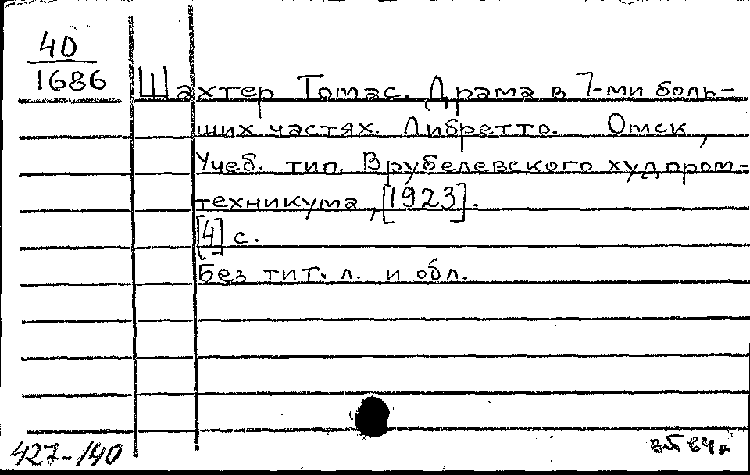 40
1686
Шахтер Томас. Драма в 7-ми боль-
ших частях. Либретто. Омск,
Учеб. тип. Врубелевского худпром-
техникума, [1923].
[4] с.
Без тит. л. и обл.
427-140